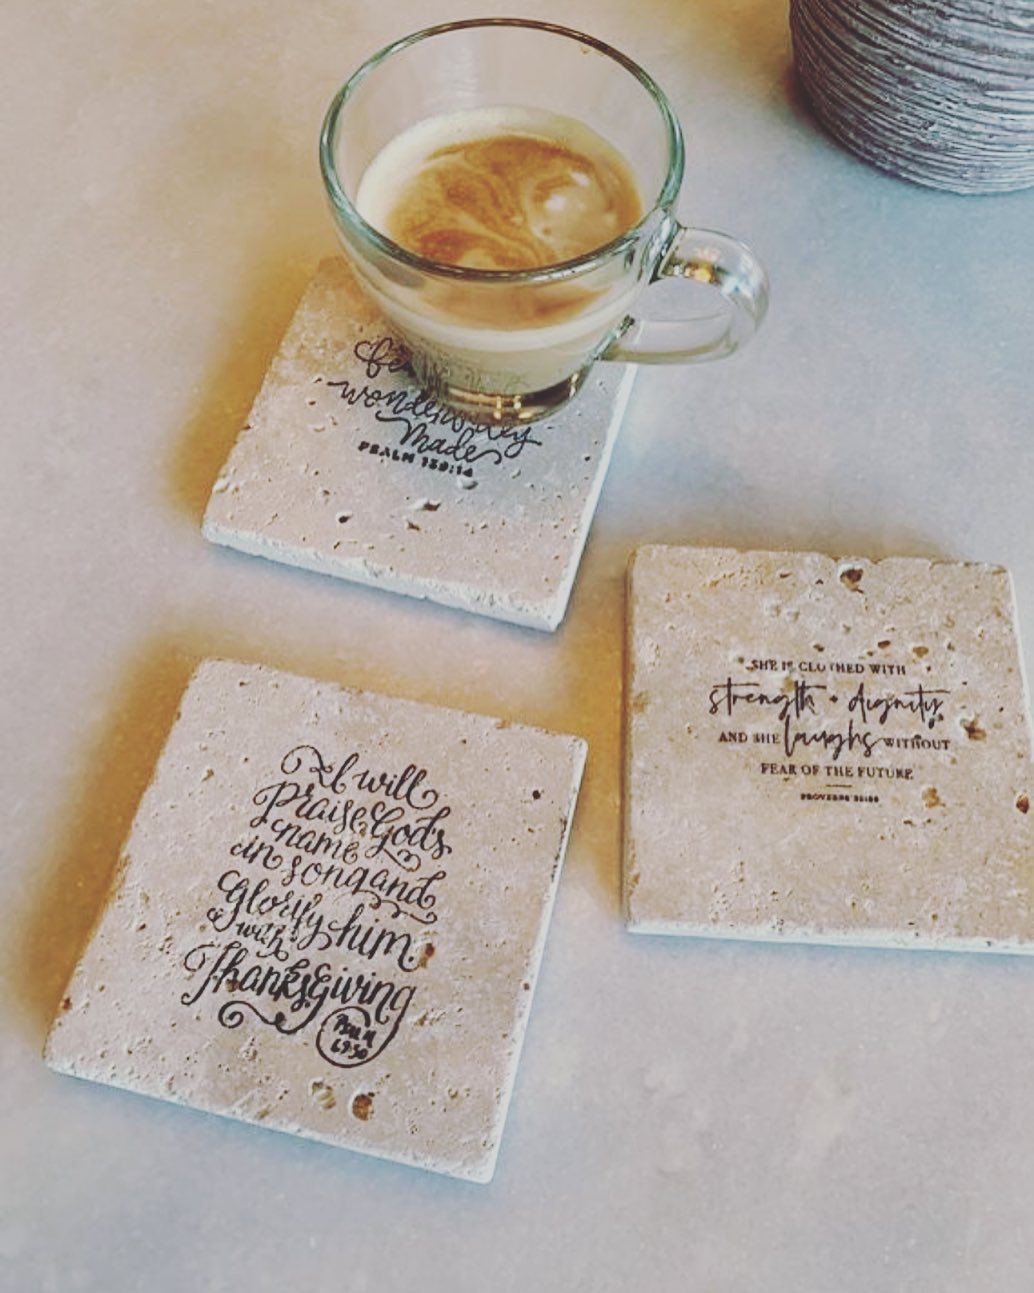 wonderfully
made
PSALM 139:14
SHE IS CLOTHED WITH
strength + dignity
AND SHE laughs WITHOUT
FEAR OF THE FUTURE
PROVERBS
I will
praise God's
name
in song and
Glorify him
with
Thanksgiving
Psalm
69:30